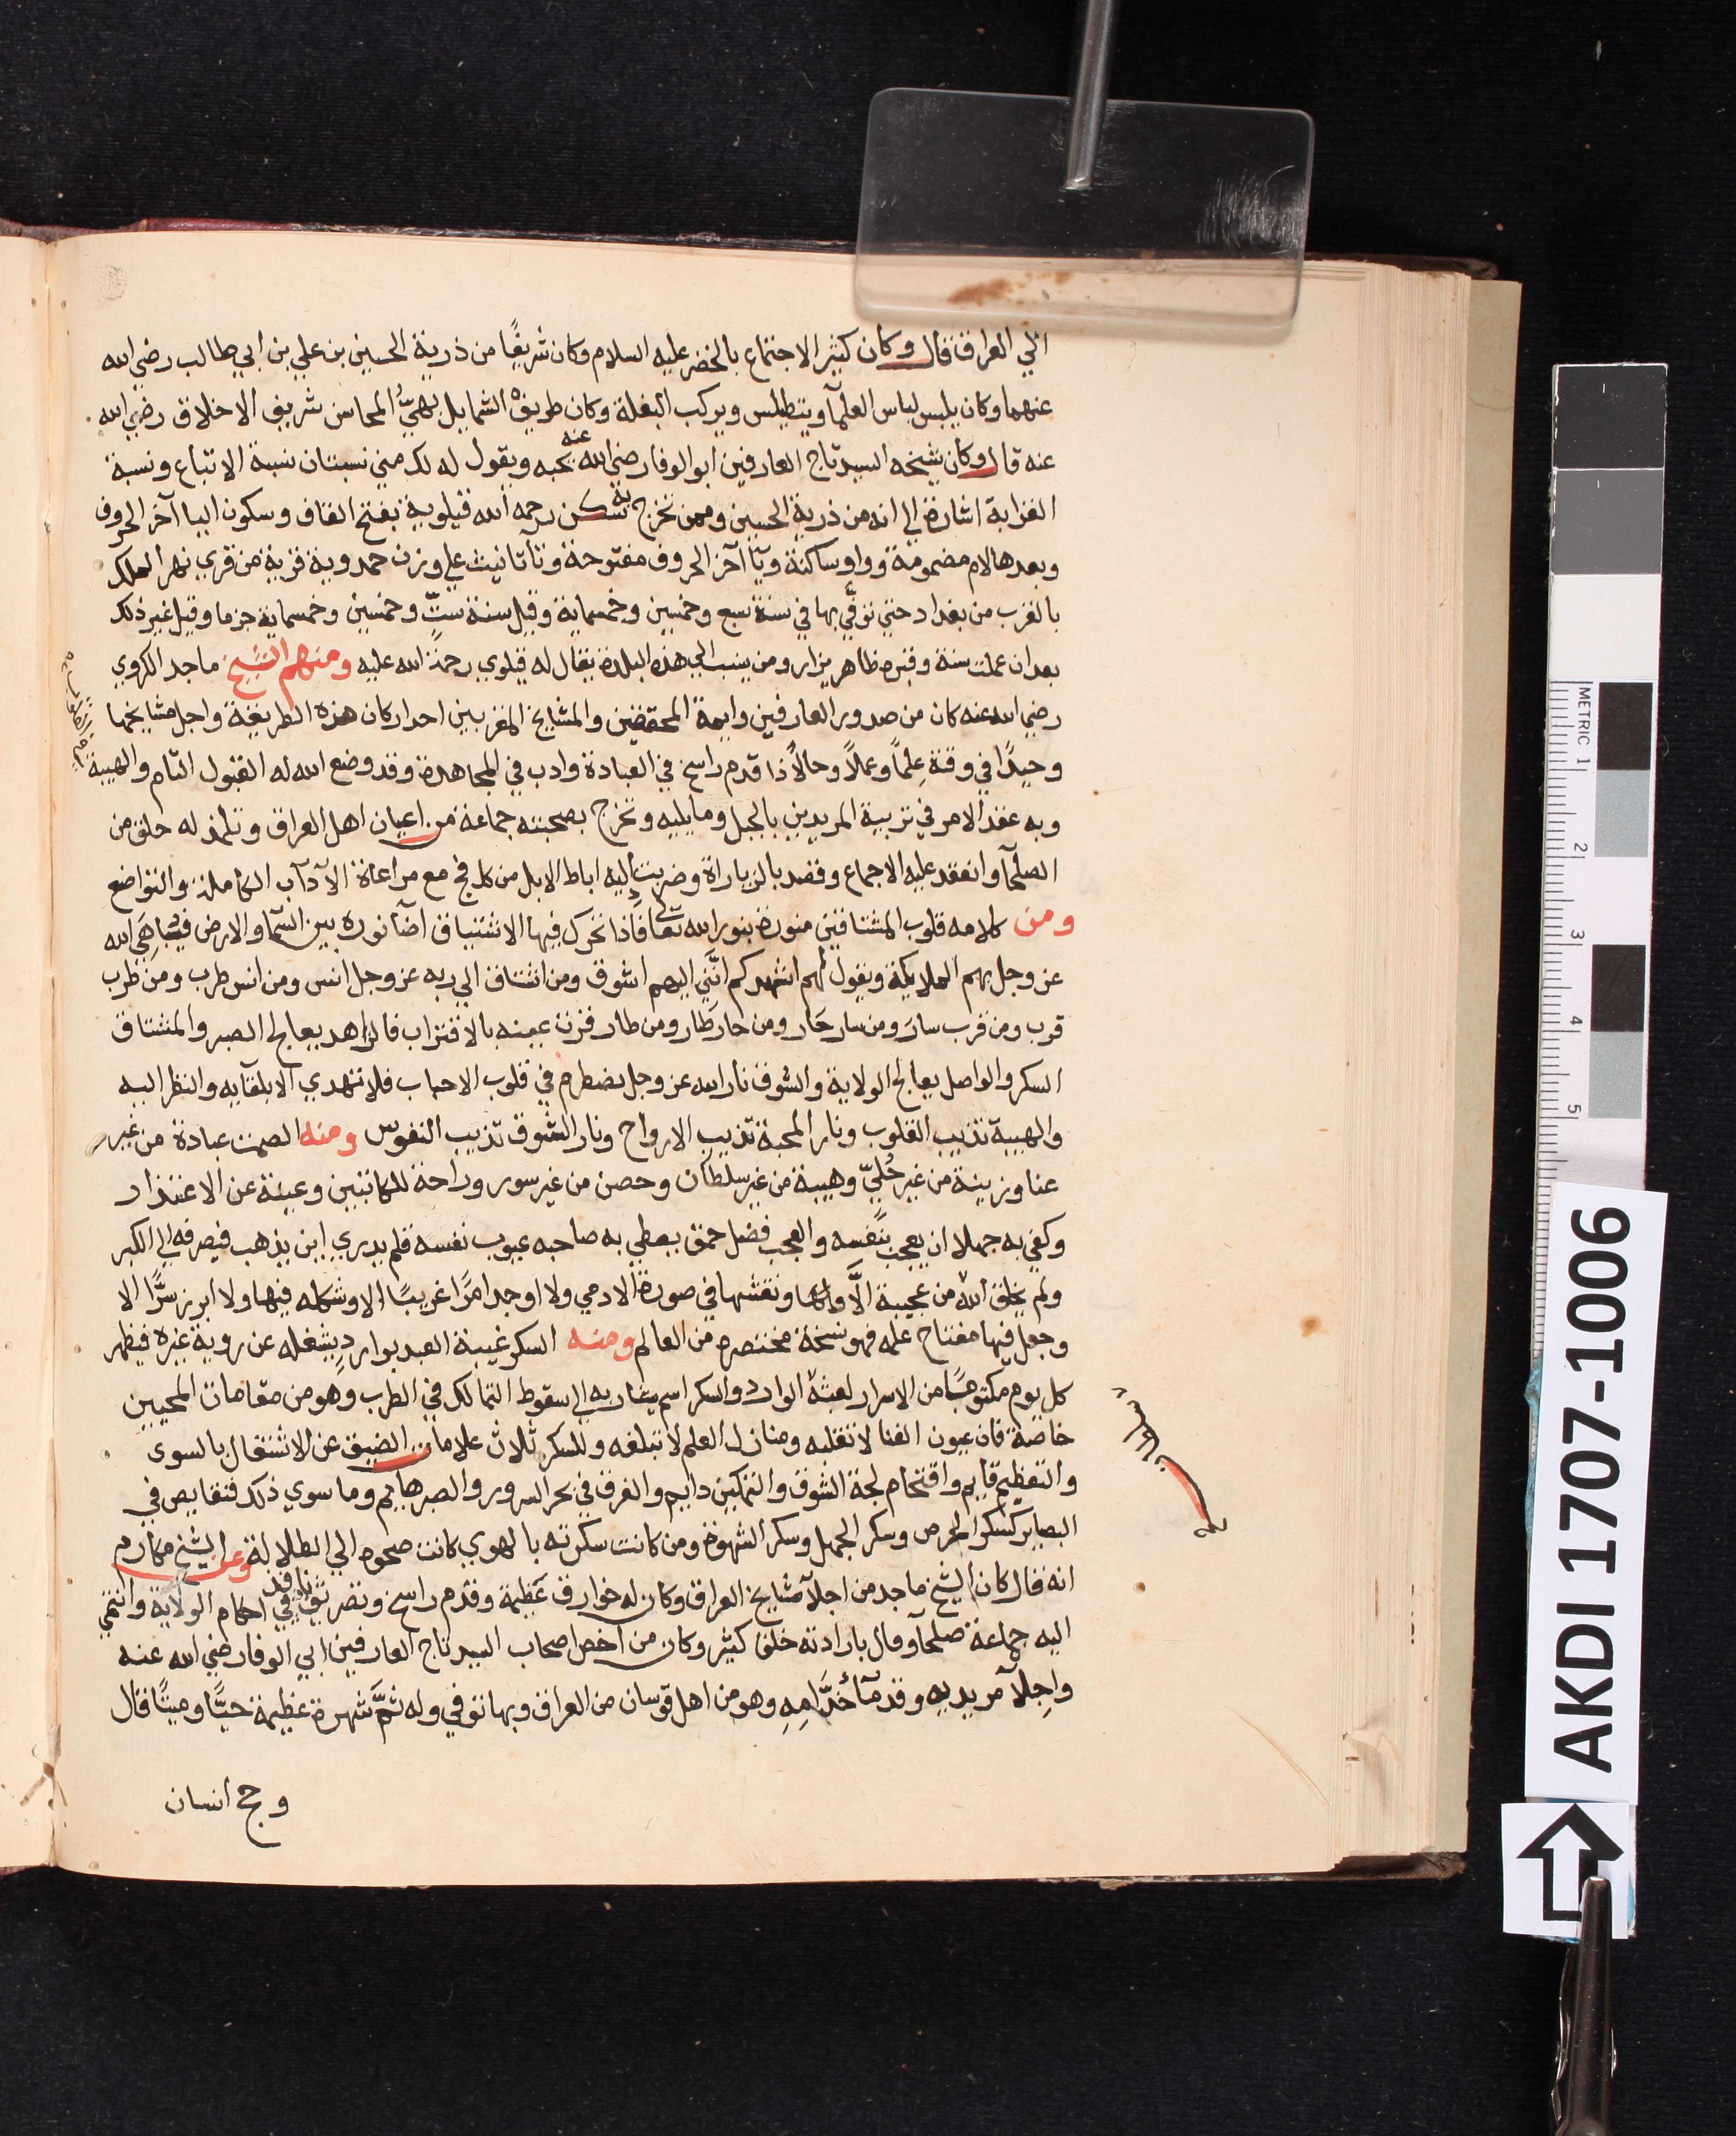 الي العراق قال وكان كثير الاجتماع بالخضر عليه السلام وكان شريفًا من ذرية الحسين بن علي بن ابي طالب رضي الله
عنهما وكان يلبس لباس العلمآ ويتطيلس ويركب البغلة وكان ظريف الشمايل بهيُّ المحاسن شريف الاخلاق رضي الله
عنه قال وكان شيخه السيد تاج العارفين ابو الوفا رضي الله عنه يحبه ويقول له لك مني نسبتان نسبة الاتباع ونسبة
القرابة اشارة الي انه من ذرية الحسين وممن تخرج به سكن رحمه الله قيلوية بفتح القاف وسكون اليا آخر الحروف
وبعدها لام مضمومة وواو ساكنة ويآ آخر الحروف مفتوحة وتآ تانيث علي وزن حمدوية قرية من قري نهر الملك
بالقرب من بغداد حتي توفّي بها في سنة سبع وخمسين وخمسماية وقيل سنة ستّ وخمسين وخمسماية جزما وقيل غير ذلك
بعد ان عملت سنة وقبره ظاهر يزار ومن ينسب الي هذه البلدة يقال له قيلوي رحمة الله عليه ومنهم الشيخ ماجد الكردي
رضي الله عنه كان من صدور العارفين وايمة المحققين والمشايخ المقربين احد اركان هذه الطريقة واجل مشايخها
وحيدًا في وقته علمًا وعملاً وحالاً ذا قدم راسخ في العبادة وادب في المجاهدة وقد وضع الله له القبول التام والهيبة
وبه عقد الامر في تربية المريدين بالجبل وما يليه وتخرج بصحبته جماعة من اعيان اهل العراق وتلمذ له خلق من
الصلحآ وانعقد عليه الاجماع وقصد بالزياراة وضربت اليه اباط الابل من كل فج مع مراعاة الآدآب الكاملة والتواضع
ومن كلامه قلوب المشتاقين منورة بنور الله تعالى فاذا تحرك فيها الاشتياق اضآ نوره بين السمآ والارض فيباهي الله
عز وجل بهم الملايكة ويقول لهم اشهدكم انَّني اليهم اشوق ومن اشتاق الي ربه عز وجل انس ومن انس طرب ومن طرب
قرب ومن قرب سارَ ومن سار حَار ومن حار طَار ومن طار قرت عينه بالاقتراب فالزاهد يعالج الصبر والمشتاق
السكر والواصل يعالج الولاية والشوق نار الله عز وجل يضطرم في قلوب الاحباب فلا تهدي الا بلقآيه والنظر اليه
والهيبة تذيب القلوب ونار المحبة تذيب الارواح ونار الشوق تذيب النفوس ومنه الصمت عبادة من غير
عنا وزينة من غير حُليّ وهيبة من غير سلطان وحصن من غير سور وراحة للكاتبين وغنية عن الاعتذار
وكفي به جهلا ان يعجب بنفسه والعجب فضل حمق يغطي به صاحبه عيوب نفسه فلم يدري اين يذهب فيصرفه الي الكبر
ولم يخلق الله من عجيبة الَّا ونقشها في صورة الادمي ولا اوجد امرًا غريبًا الا وشكله فيها ولا ابرز سرًّا الا
وجعل فيها مفتاح علمه فهو نسخة مختصره من العالم ومنه السكر غيبة العبد بواردٍ يشغله عن روية غيره فيظهر
كل يوم مكتومًا من الاسرار لغشة الوارد والسكر اسم يشار به الي سقوط التمالك في الطرب وهو من مقامات المحبين
خاصة فان عيون الفنا لا تقلبه ومنازل العلم لا تبلغه وللسكر ثلاث علامات الضيق عن الاشتغال بالسوى
والتعظيم قايم واقتحام لجة الشوق والتمكين دايم والغرق في بحر السرور والصبر هايم وما سوي ذلك فنقايص في
البصاير كسكر الحرص وسكر الجهل وسكر الشهوة ومن كانت سكرته بالهوي كانت صحوه الي الظلالة وعن الشيخ مكارم
انه قال كان الشيخ ماجد من اجلآ مشايخ العراق وكان له خوارق عظيمة وقدم راسخ وتصريف نافذ في احكام الولاية وانتمي
اليه جماعة صلحآ وقال بارادته خلق كثير وكان من اخص اصحاب السيد تاج العارفين ابي الوفا رضي الله عنه
واجلآ مريديه وقدمآ خُدَّامِهِ وهو من اهل قوسان من العراق وبها توفي وله ثمَّ شهرة عظيمة حيًّا وميتًا قال
وحج انسان